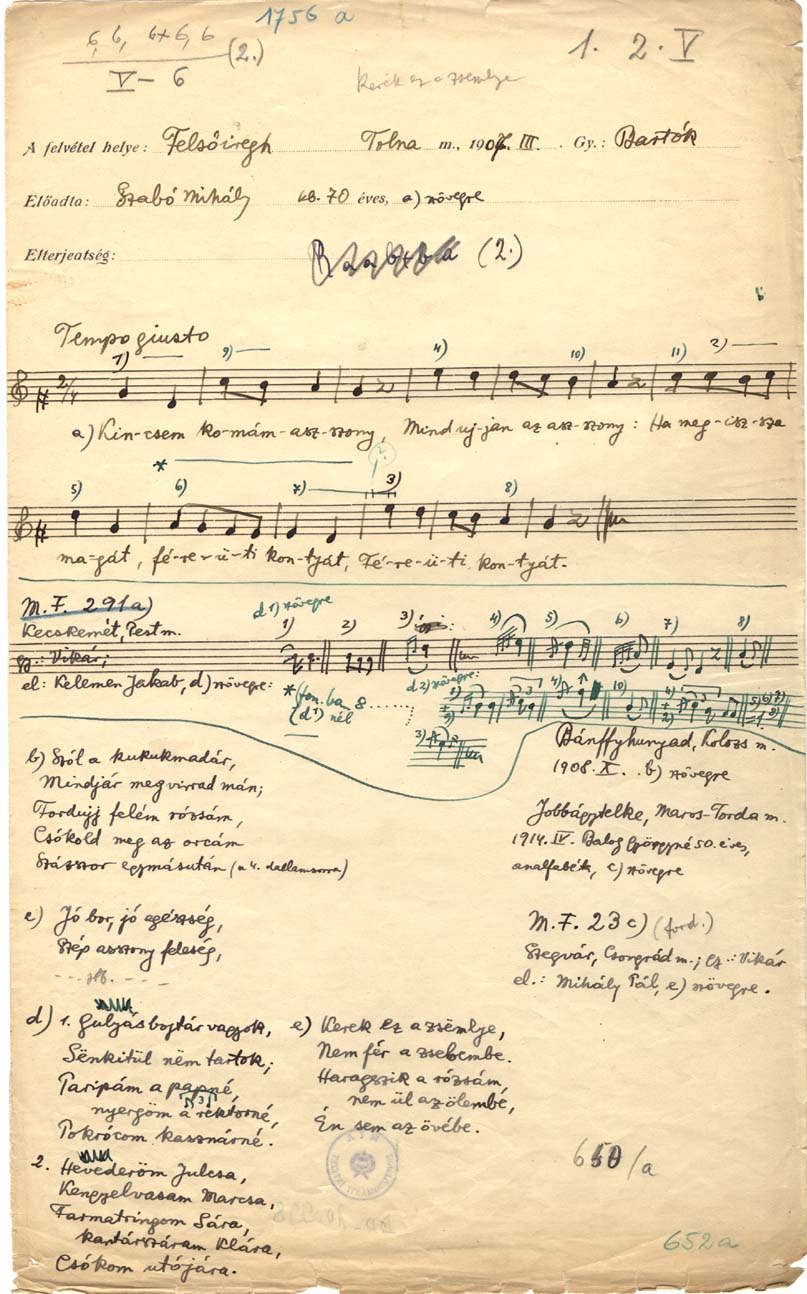 1756 a
6, 6, 6+6, 6
V – 6
(2.)
1. 2. V
Kerek ez a zsemlye
A felvétel helye: Felsőiregh Tolna m., 1907. III. Gy.: Bartók
Előadta: Szabó Mihály kb. 70 éves, a) szövegre
Elterjedtség:
(2.)
Tempo giusto
1) 9) 4) 10) 11) 2)
2/4
a) Kin-csem ko-mám-asz-szony, Mind uj-ján az asz-szony: Ha meg-isz-sza
*
5) 6) 7) 3) 8)
ma-gát, fé-re-ü-ti kon-tyát, Fé-re-ü-ti kon-tyát.
M.F. 291a)
Kecskemét, Pest m.
gy.: Vikár;
el: Kelemen Jakab, d) szövegre:
d1) szövegre
1) 2) 3) 4) 5) 6) 7) 8)
d2) szövegre:
* fon.ban 8
(d1) nél
Bánffyhunyad, Kolozs m.
1908. X. b) szövegre
b) Szól a kukukmadár,
Mindjár megvirrad mán;
Fordujj felém rózsám,
Csókold meg az orcám
Százszor egymásután (a 4. dallamsorra)
Jobbágytelke, Maros-Torda m.
1914. IV. Balog Györgyné 50 éves,
analfabéta, c) szövegre
c) Jó bor, jó egézség,
Szép asszony feleség,
--- stb. ---
M.F. 23c) (ford.)
Szegvár, Csongrád m.; gy.: Vikár
el.: Mihály Pál, e) szövegre.
d) 1. Gulyásbojtár vagyok,
Sënkitül nëm tartok;
Paripám a papné,
nyergöm a rektorné,
Pokrócom kasznárné.
e) Kerek ez a zsëmlye,
Nem fér a zsebembe.
Haragszik a rózsám,
nem ül az ölembe,
Én sem az övébe.
2. Hevederöm Julcsa,
Kengyelvasam Marcsa,
Farmatringom Sára,
kantárszáram Klára,
Csókom utójára.
650/a
652a